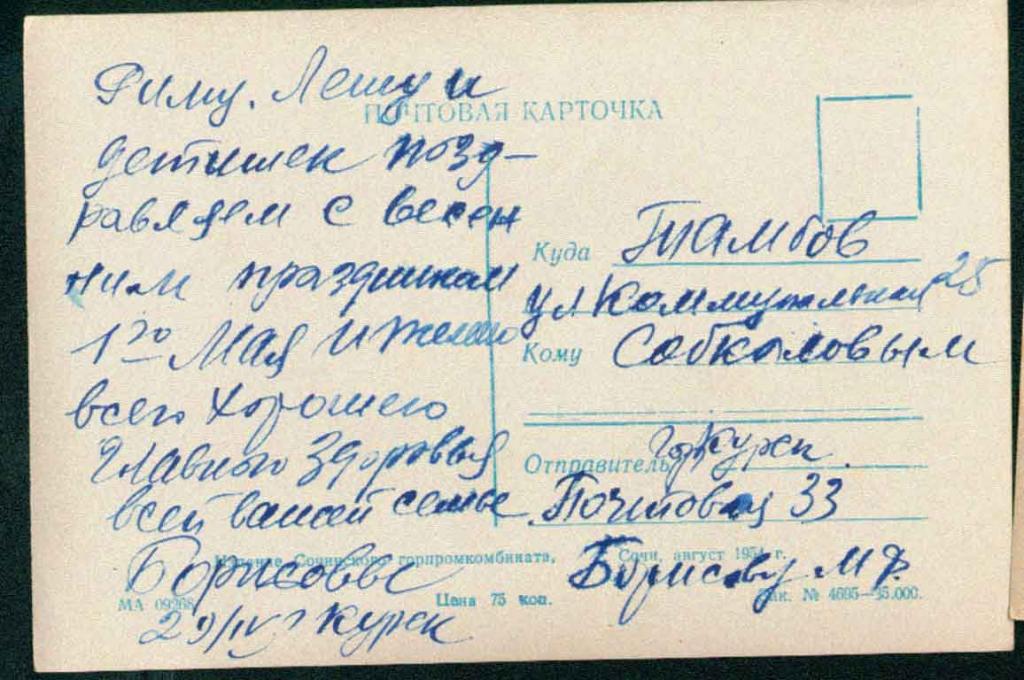 Риму, Лешу и
ПОЧТОВАЯ КАРТОЧКА
детишек позд-
равляем с весен
ним праздником
1го Мая и желаю
всего хорошего
главного здоровья
всей вашей семье
Борисовы
29/IV Курск
Куда Тамбов
ул Коммунальная 25
Кому Собкаловым
Отправитель гор Курск.
Почтовая 33
Борисову М Ф
Издание Сочинского горпромкомбината, Сочи, август 1954 г.
МА 09268 Цена 75 коп. Зак. № 4695—35.000.